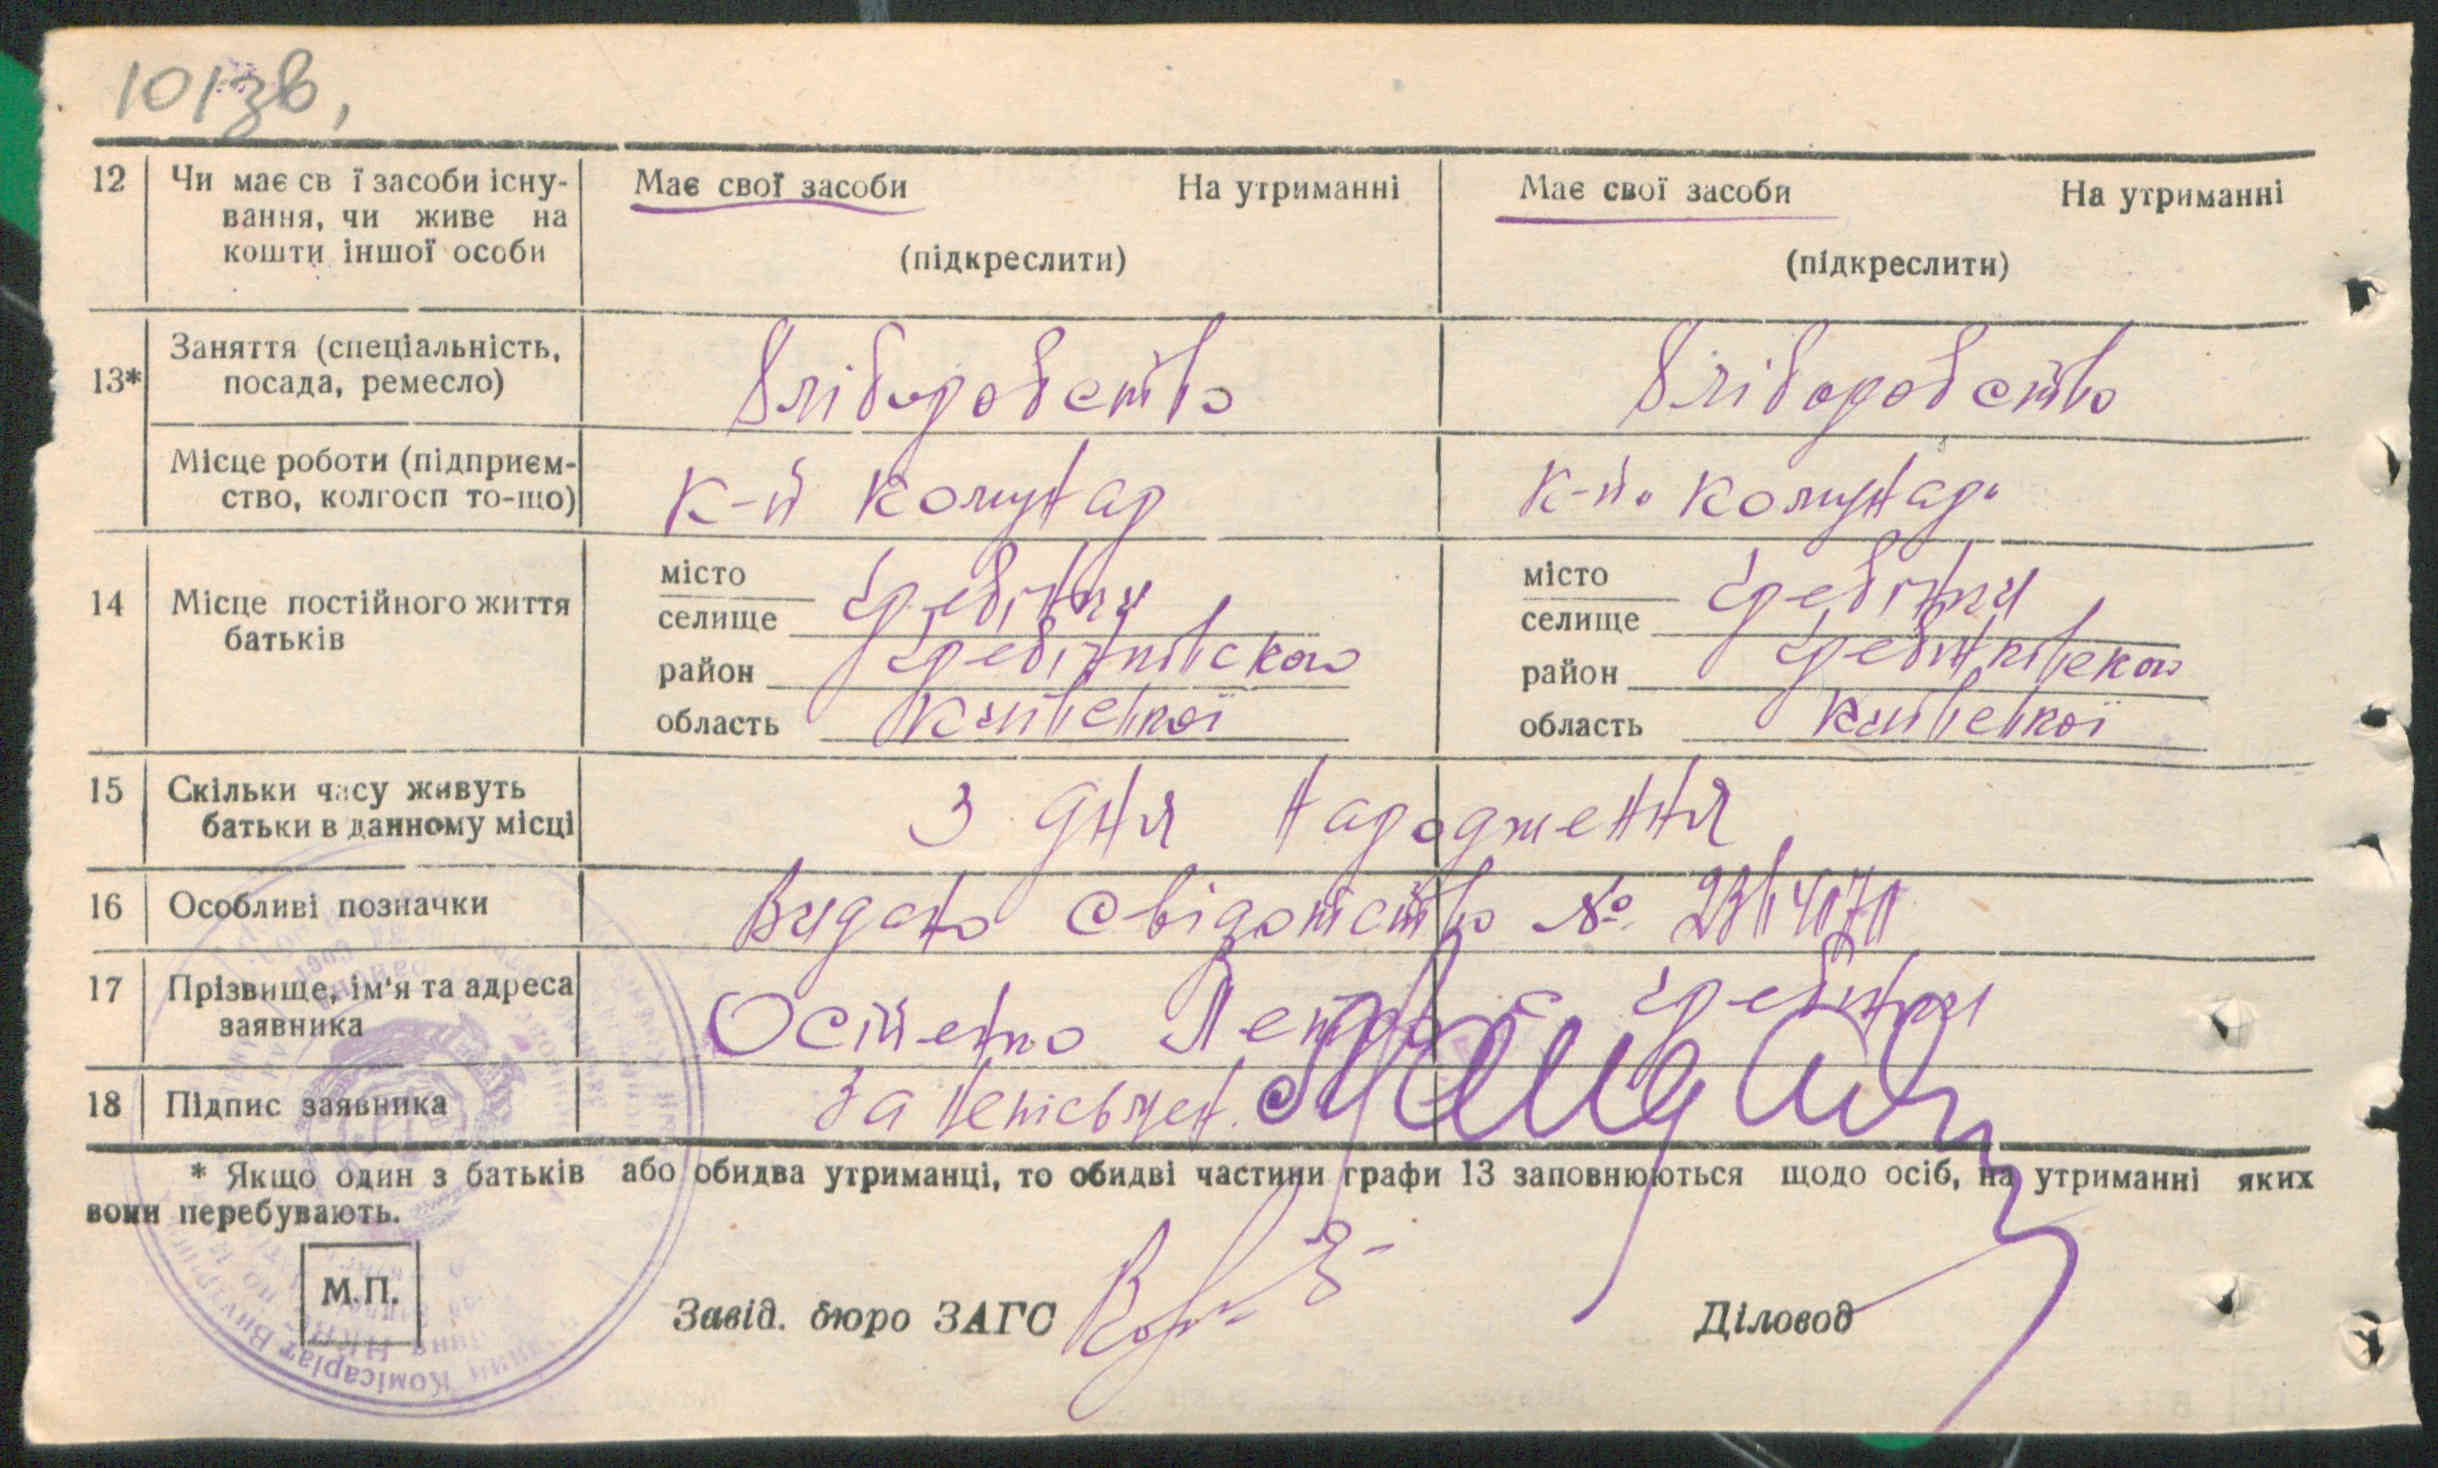 101зв,
12 Чи має св ї засоби існу- Має свої засоби На утриманні Має свої засоби На утриманні
вання, чи живе на
кошти іншої особи (підкреслити) (підкреслити)
Заняття (спеціальність, Хліборобство Хліборобство
13* посада, ремесло)
Місце роботи (підприєм- к-п Комунар к-п. Комунар.
ство, колгосп то-що)
14 Місце постійного життя місто місто
батьків селище Гребінки селище Гребінки
район Гребінківского район Гребінківского
область Київської область Київської
15 Скільки часу живуть З дня народження
батьки в данному місці
16 Особливі позначки Видано свідотство №
17 Прізвище, ім'я та адреса Осіпенко Петро с Гребінки
заявника
18 Підпис заявника За
* Якщо один з батьків або обидва утриманці, то обидві частини графи 13 заповнюються щодо осіб, на утриманні яких
вони перебувають.
М.П.
Завід. бюро ЗАГС Діловод
Комісаріат Внутрішн